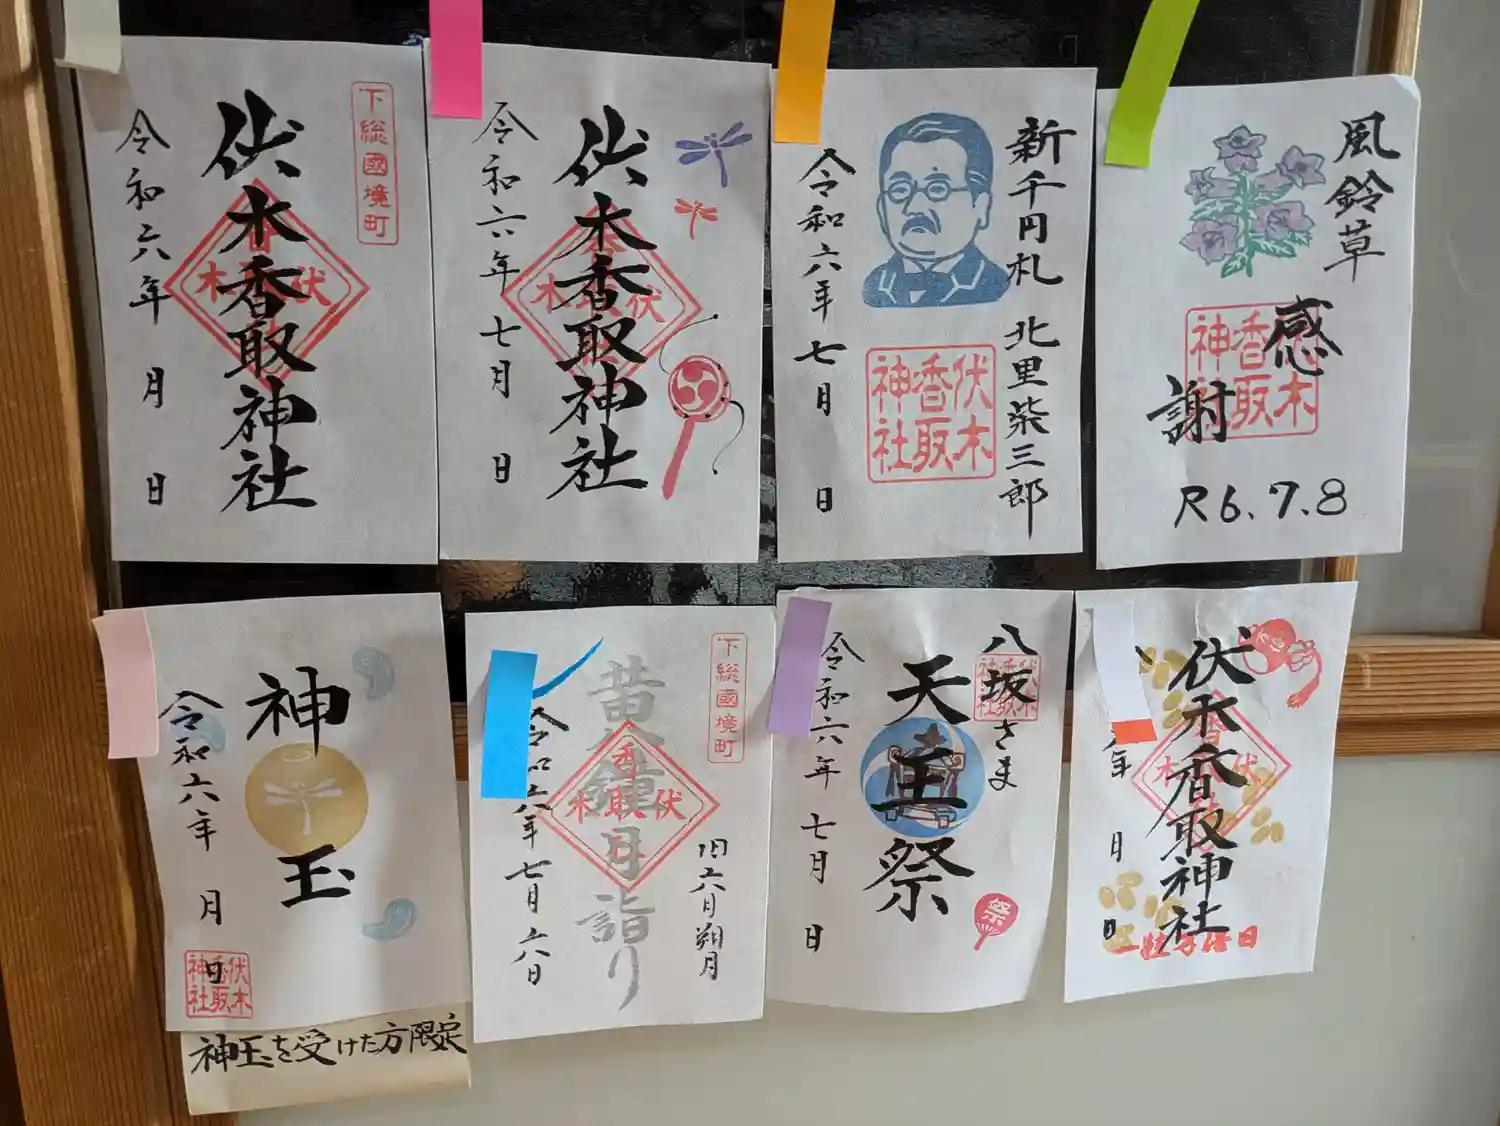 下総國境町
伏木香取神社
伏木香取
令和六年 月 日
伏木香取神社
伏木香取
令和六年 七月 日
新千円札 北里柴三郎
伏木香取神社
令和六年 七月 日
風鈴草
感謝
伏木香取神社
R6.7.8
神玉
令和六年 月 日
伏木香取神社
神玉を受けた方限定
下総國境町
黄鐘月詣り
伏木香取
旧六月朔月
令和六年 七月 六日
八坂さま
伏木香取神社
天王祭
祭
令和六年 七月 日
伏木香取神社
伏木香
年 月 日
一粒万倍日